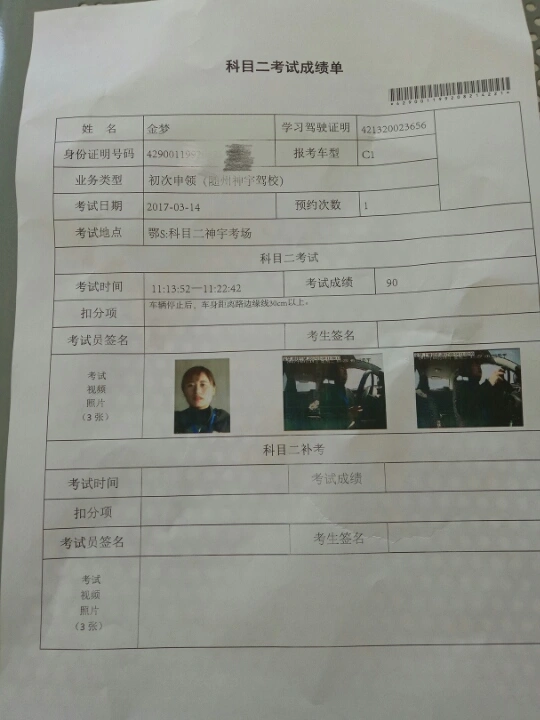 科目二考试成绩单
姓 名 金梦 学习驾驶证明 421320023656
身份证明号码 4290011992 报考车型 C1
业务类型 初次申领（随州神宇驾校）
考试日期 2017-03-14 预约次数 1
考试地点 鄂S:科目二神宇考场
科目二考试
考试时间 11:13:52—11:22:42 考试成绩 90
扣分项 车辆停止后，车身距离路边缘线30cm以上。
考试员签名 考生签名
考试
视频
照片
（3 张）
科目二补考
考试时间 考试成绩
扣分项
考试员签名 考生签名
考试
视频
照片
（3 张）